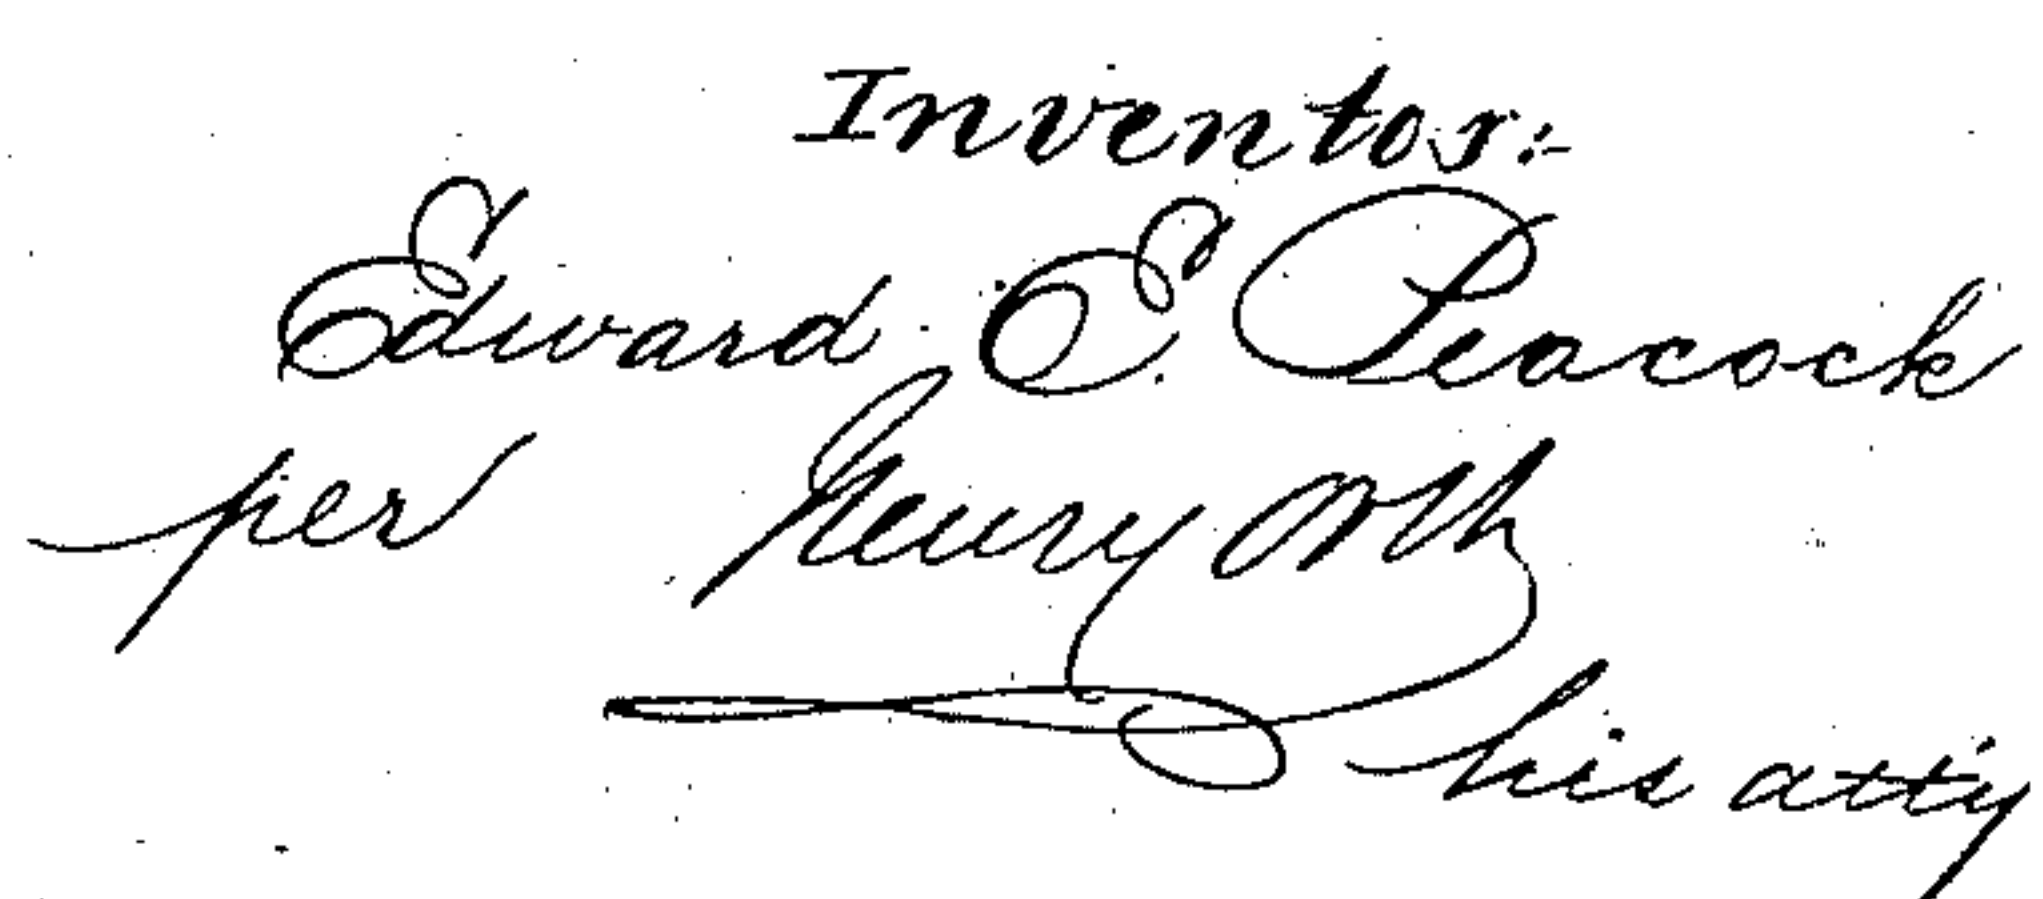 Inventor:-
Edward E. Peacock
per Henry Orth
his att'y